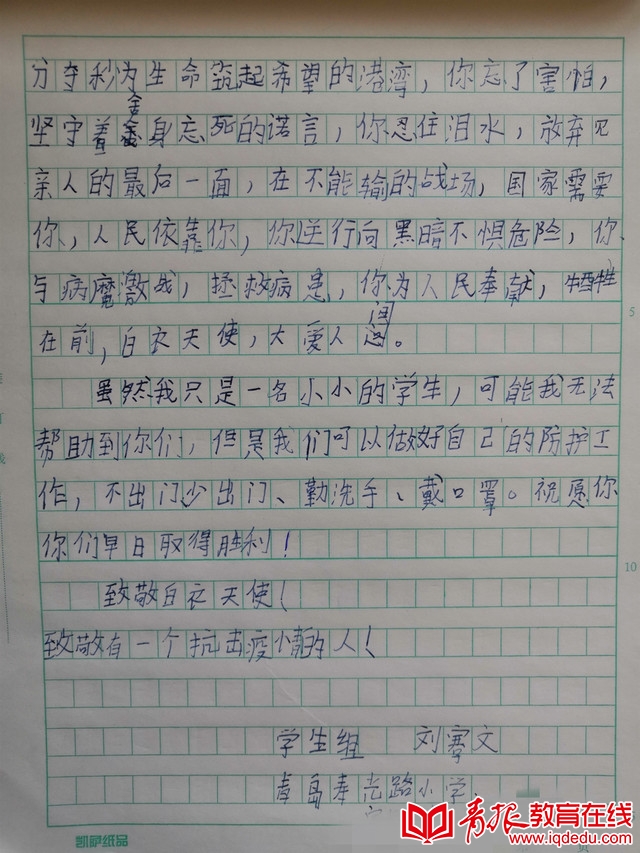 分夺秒为生命筑起希望的港湾，你忘了害怕，
坚守着舍身忘死的诺言，你忍住泪水，放弃见
亲人的最后一面，在不能输的战场，国家需要
你，人民依靠你，你逆行向黑暗不惧危险，你
与病魔激战，拯救病患，你为人民奉献，牺牲
在前，白衣天使，大爱人间。
虽然我只是一名小小的学生，可能我无法
帮助到你们，但是我们可以做好自己的防护工
作，不出门少出门、勤洗手、戴口罩。祝愿你
你们早日取得胜利！
致敬白衣天使！
致敬有一个抗击疫情的人！
学生组 刘赛文
青岛奉光路小学
5
10
凯萨纸品
页
青报教育在线
www.iqdedu.com